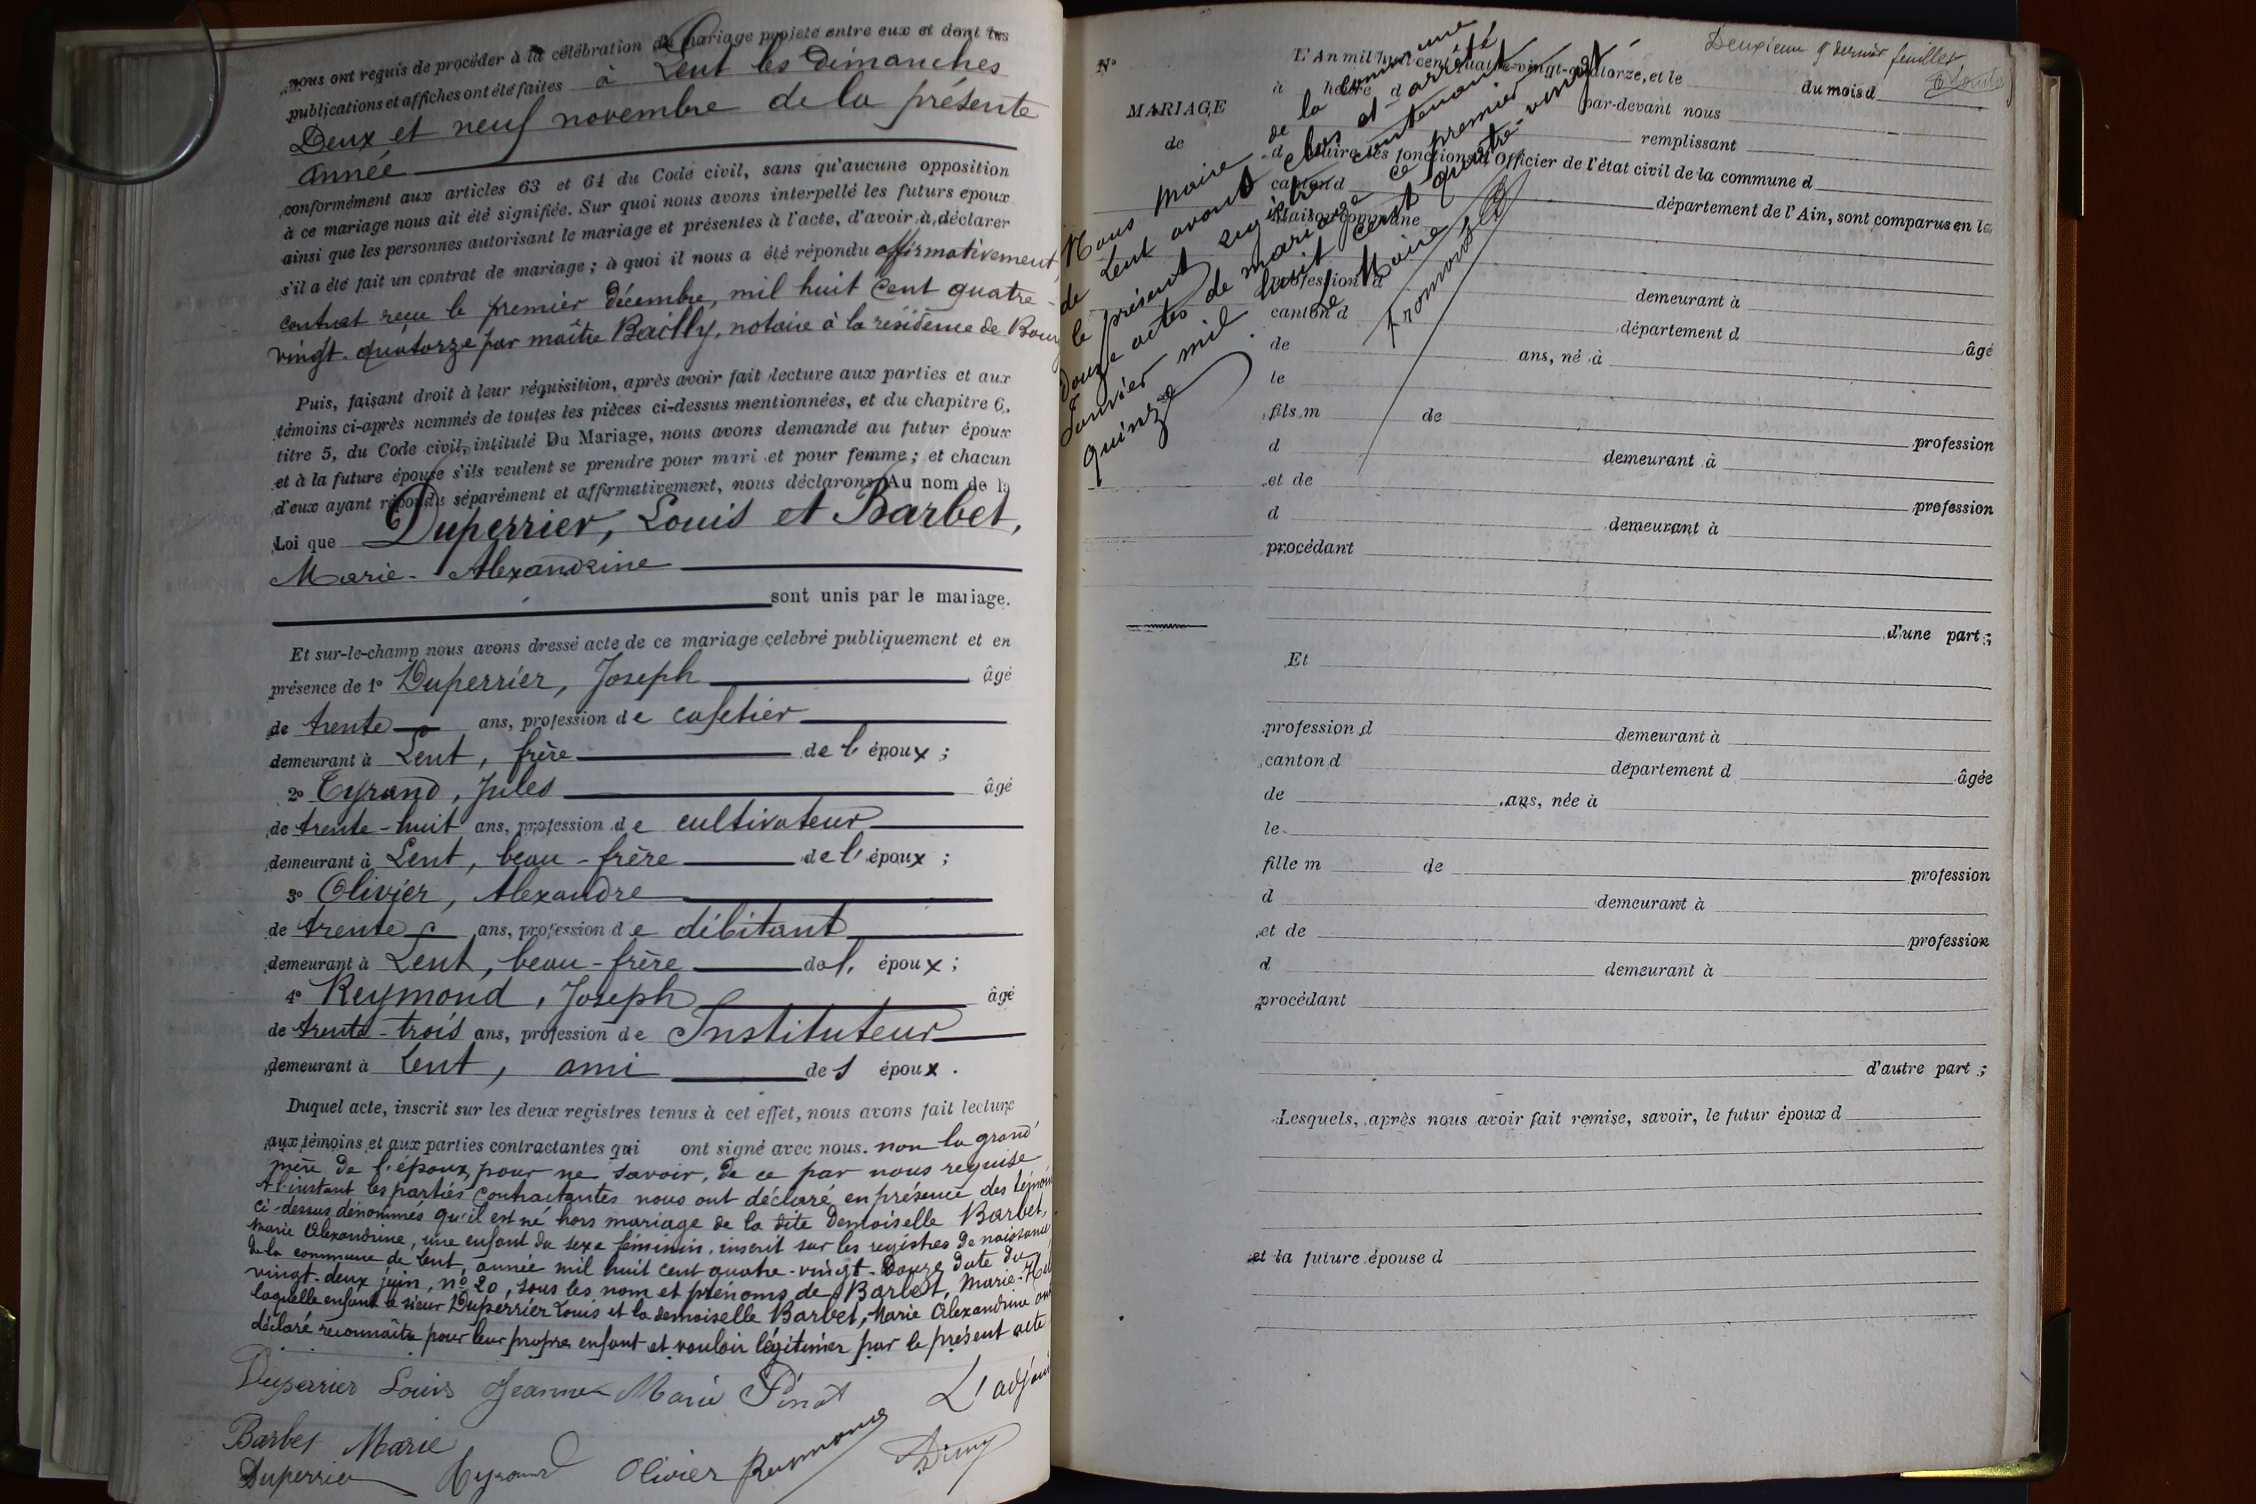 nous ont requis de procéder à la célébration du mariage projeté entre eux et dont les
publications et affiches ont été faites à Lent les Dimanches
Deux et neuf novembre de la présente
année
conformément aux articles 63 et 64 du Code civil, sans qu'aucune opposition
à ce mariage nous ait été signifiée. Sur quoi nous avons interpellé les futurs époux
ainsi que les personnes autorisant le mariage et présentes à l'acte, d'avoir à déclarer
s'il a été fait un contrat de mariage ; à quoi il nous a été répondu affirmativement,
contrat reçu le premier décembre, mil huit cent quatre-
vingt-quatorze par maître Bailly, notaire à la résidence de Bourg
Puis, faisant droit à leur réquisition, après avoir fait lecture aux parties et aux
témoins ci-après nommés de toutes les pièces ci-dessus mentionnées, et du chapitre 6,
titre 5, du Code civil, intitulé Du Mariage, nous avons demandé au futur époux
et à la future épouse s'ils veulent se prendre pour mari et pour femme ; et chacun
d'eux ayant répondu séparément et affirmativement, nous déclarons Au nom de la
Loi que Duperrier, Louis et Barbet,
Marie-Alexandrine
sont unis par le mariage.
Et sur-le-champ nous avons dressé acte de ce mariage celebré publiquement et en
présence de 1° Duperrier, Joseph âgé
de trente ans, profession de cafetier
demeurant à Lent, frère de l'époux ;
2° Tyrand, Jules âgé
de trente-huit ans, profession de cultivateur
demeurant à Lent, beau-frère de l'époux ;
3° Olivier, Alexandre
de trente ans, profession de débitant
demeurant à Lent, beau-frère de l' époux ;
4° Reymond, Joseph âgé
de trente-trois ans, profession de Instituteur
demeurant à Lent, ami des époux.
Duquel acte, inscrit sur les deux registres tenus à cet effet, nous avons fait lecture
aux témoins et aux parties contractantes qui ont signé avec nous. non la grand'
mère de l'époux, pour ne savoir, de ce par nous requise
A l'instant les parties contractantes nous ont déclaré en présence des témoins
ci-dessus dénommés qu'il est né hors mariage de la dite Demoiselle Barbet,
Marie Alexandrine, une enfant du sexe féminin, inscrit sur les registres de naissance
de la commune de Lent, année mil huit cent quatre-vingt-Douze, date du
vingt-deux juin, n° 20, sous les nom et prénoms de Barbet, Marie-
laquelle enfant le sieur Duperrier Louis et la demoiselle Barbet, Marie Alexandrine ont
déclaré reconnaître pour leur propre enfant et vouloir légitimer par le présent acte
Duperrier Louis Jeanne Marie Pinat L'adjoint
Barbet Marie
Duperrier Tyrand Olivier Reymond
Deuxième et dernier feuillet
N°
MARIAGE
de
L'An mil huit cent quatre-vingt-quatorze, et le du mois d
à heure d par-devant nous
remplissant
d Maire les fonctions d'Officier de l'état civil de la commune d
canton d département de l'Ain, sont comparus en la
Maison commune
Nous Maire de la Commune
de Lent avons clos et arrêté
le présent registre contenant
Douze actes de mariage ce premier
Janvier mil huit cent quatre-vingt-
quinze
Le Maire
profession d demeurant à
canton d département d âgé
de ans, né à
le
fils m de profession
d demeurant à
et de profession
d demeurant à
procédant
d'une part ;
Et
profession d demeurant à
canton d département d âgée
de ans, née à
le
fille m de profession
d demeurant à
et de profession
d demeurant à
procédant
d'autre part ;
Lesquels, après nous avoir fait remise, savoir, le futur époux d
et la future épouse d